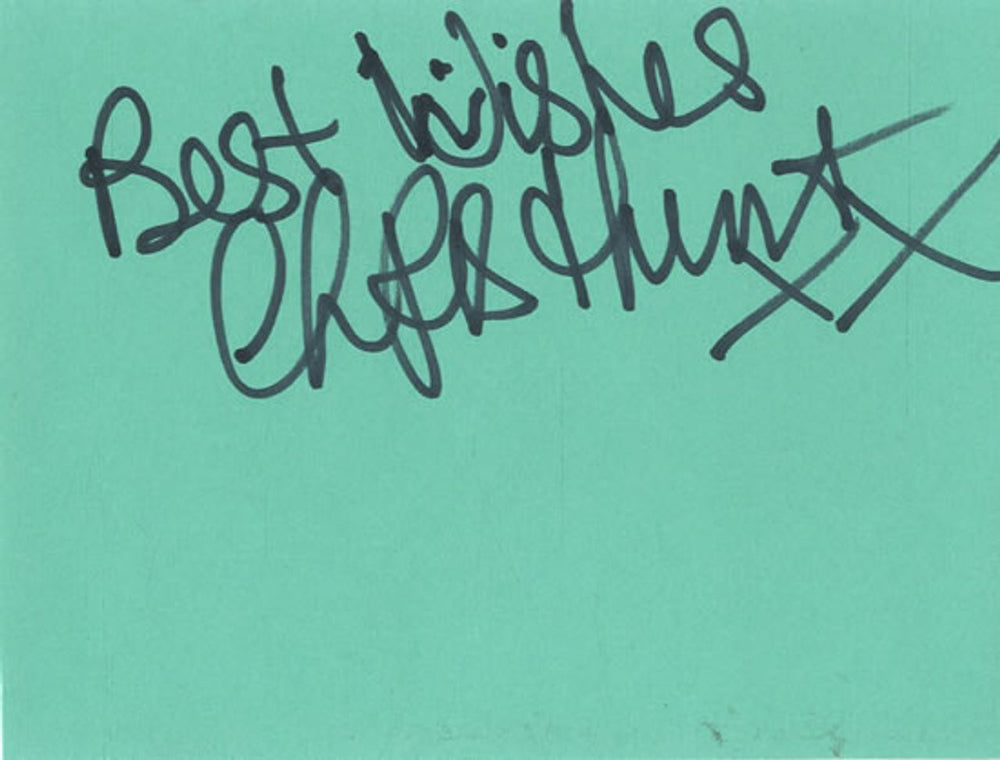 Best Wishes
Hunt xx